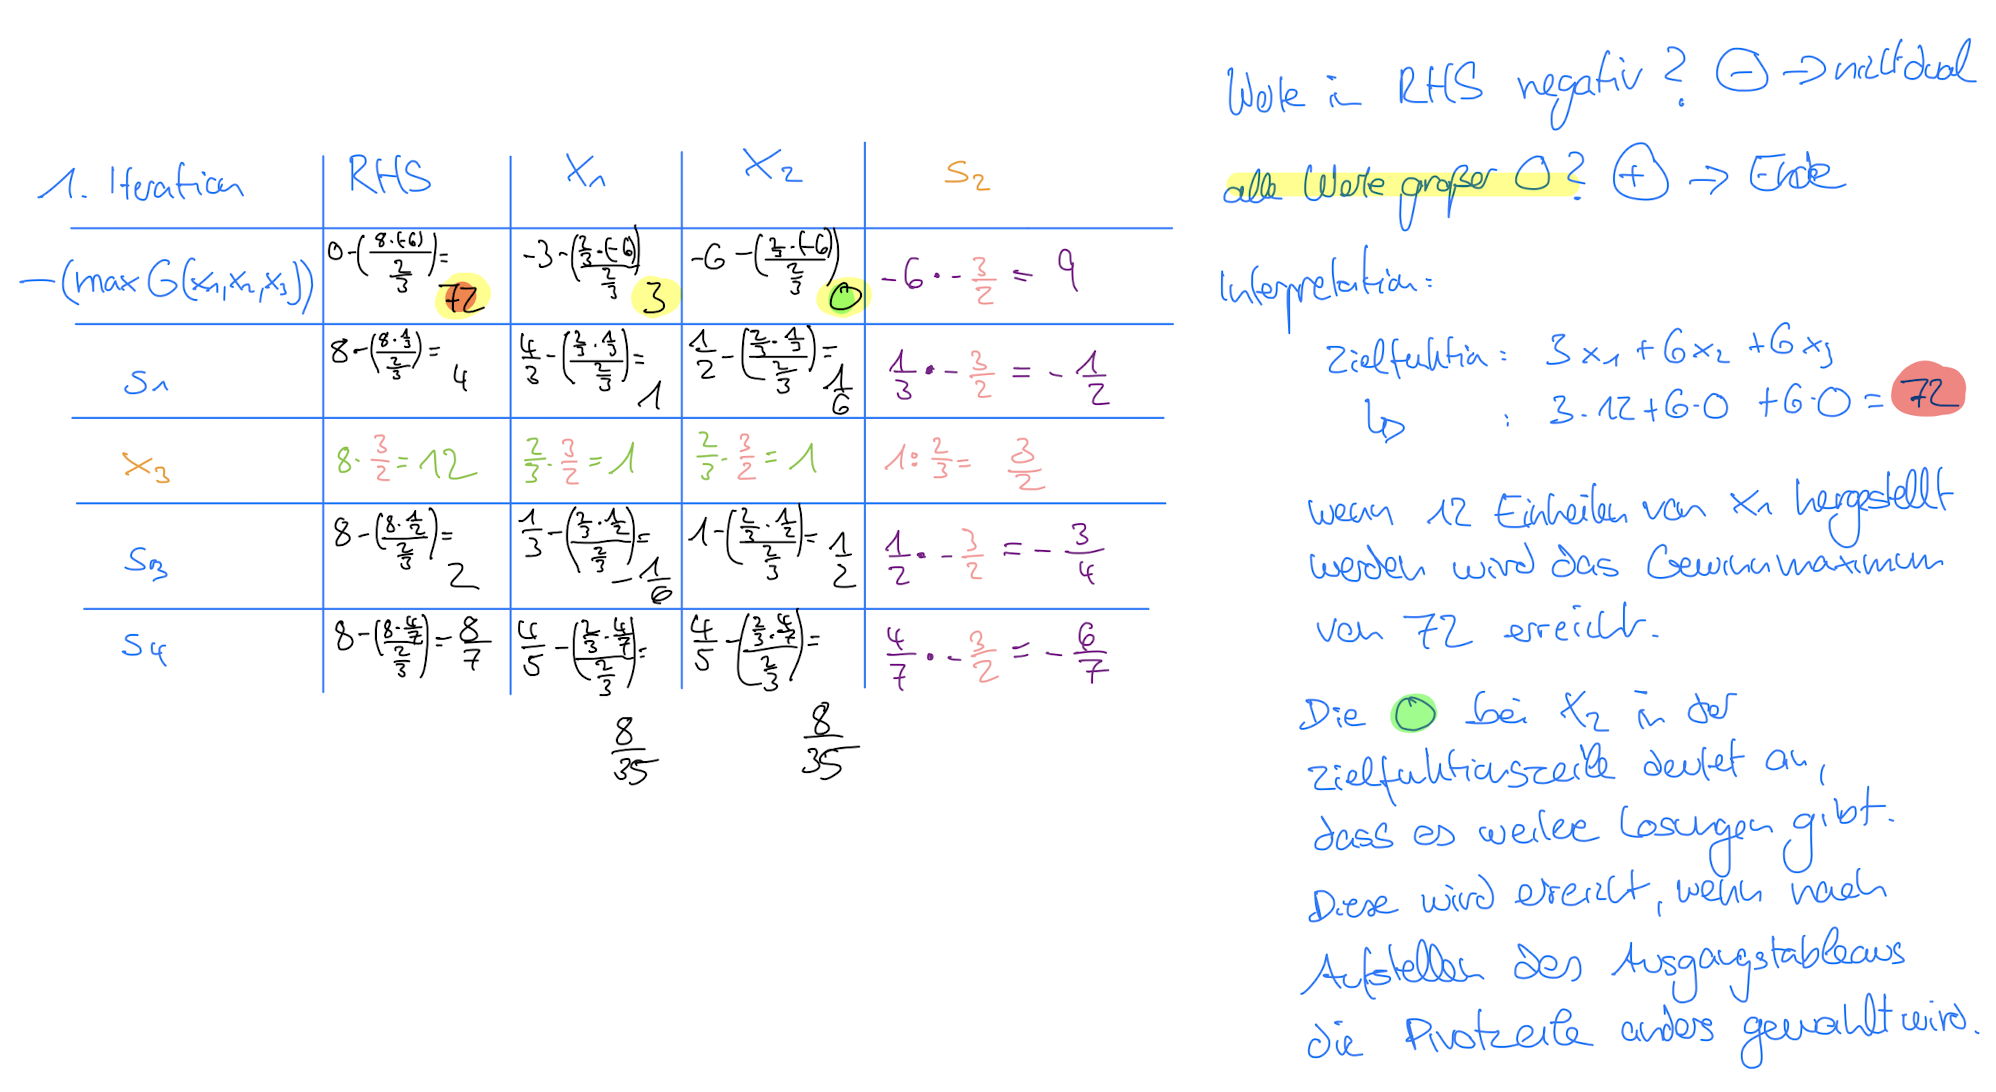 1. Iteration RHS x₁ x₂ s₂
-(max G(x₁,x₂,x₃)) 0-(8·(-6)/(2/3))= 72 -3-(2/3·(-6)/(2/3)) 3 -6-(2/3·(-6)/(2/3)) 0 -6·-3/2 = 9
s₁ 8-(8·1/3/(2/3))= 4 4/3-(2/3·1/3/(2/3))= 1 1/2-(2/3·1/3/(2/3))= 1/6 1/3·-3/2 = -1/2
x₃ 8·3/2=12 2/3·3/2=1 2/3·3/2=1 1:2/3= 3/2
s₃ 8-(8·1/2/(2/3))= 2 1/3-(2/3·1/2/(2/3))= -1/6 1-(2/3·1/2/(2/3))= 1/2 1/2·-3/2 = -3/4
s₄ 8-(8·4/7/(2/3))=8/7 4/5-(2/3·4/7/(2/3))= 8/35 4/5-(2/3·4/7/(2/3))= 8/35 4/7·-3/2 = -6/7
Werte in RHS negativ? ⊖ → nicht dual
alle Werte großer 0? ⊕ → Ende
Interpretation:
Zielfuktion: 3x₁+6x₂+6x₃
↳ : 3·12+6·0+6·0=72
wenn 12 Einheiten von x₁ hergestellt
werden wird das Gewinnmaximum
von 72 erreicht.
Die 0 bei x₂ in der
Zielfuktionszeile deutet an,
dass es weitere Losungen gibt.
Diese wird erreicht, wenn nach
Aufstellen des Ausgangstableaus
die Pivotzeile anders gewahlt wird.